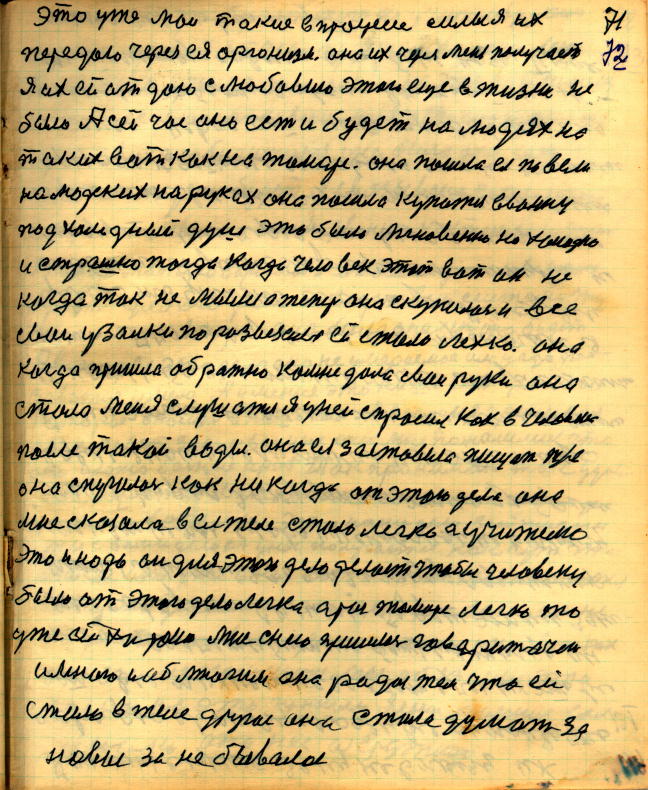 Это уже мои такие в процессе силы я их 71
передаю через ея организм. она их через меня получает 72
Я их ей отдаю с любовью этого еще в жизни не
было А сей час оно есть и будет на людях на
таких вот как на тамаре. она пошла ея повели
на людских на руках она пошла купатся в ванну
под холодный душ это было мгновенно но холодно
и страшно тогда когда человек этот вот он не
когда так не мылся а теперь она скупалася и все
свои узелки поразвезала ей стало легко. она
когда пришла обратно комне дала свои руки она
стала меня слушать я у ней спросил как в человека
после такой воды. она ея заставила
она спугалася как ни когда от этого дела она
мне сказала в ея теле стало легко а учителю
Это и надо он для этого дело делает чтобы человеку
было от этого дела легко а раз тамаре легко то
уже ей мне с нею пришлося говарит
и много и об многим она рада тем что ей
стало в теле другое она стала думат за
новые за не бывалое